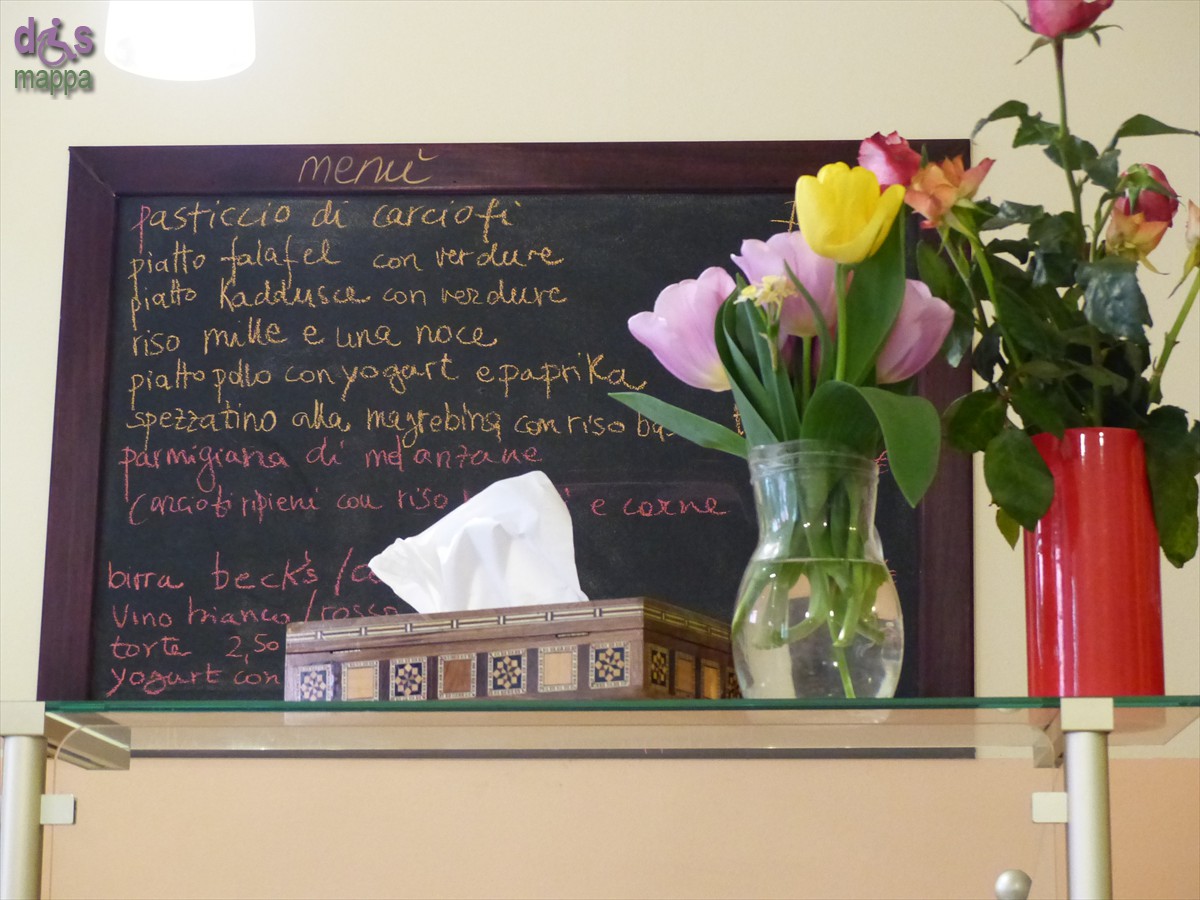 dis
mappa
menù
pasticcio di carciofi
piatto falafel con verdure
piatto Kadduscе con verdure
riso mille e una noce
piatto pollo con yogart e paprika
spezzatino alla magrebina con riso bas
parmigiana di melanzane
Carciofi ripieni con riso e carne
birra beck's /
vino bianco / rosso
torte 2,50
yogurt con